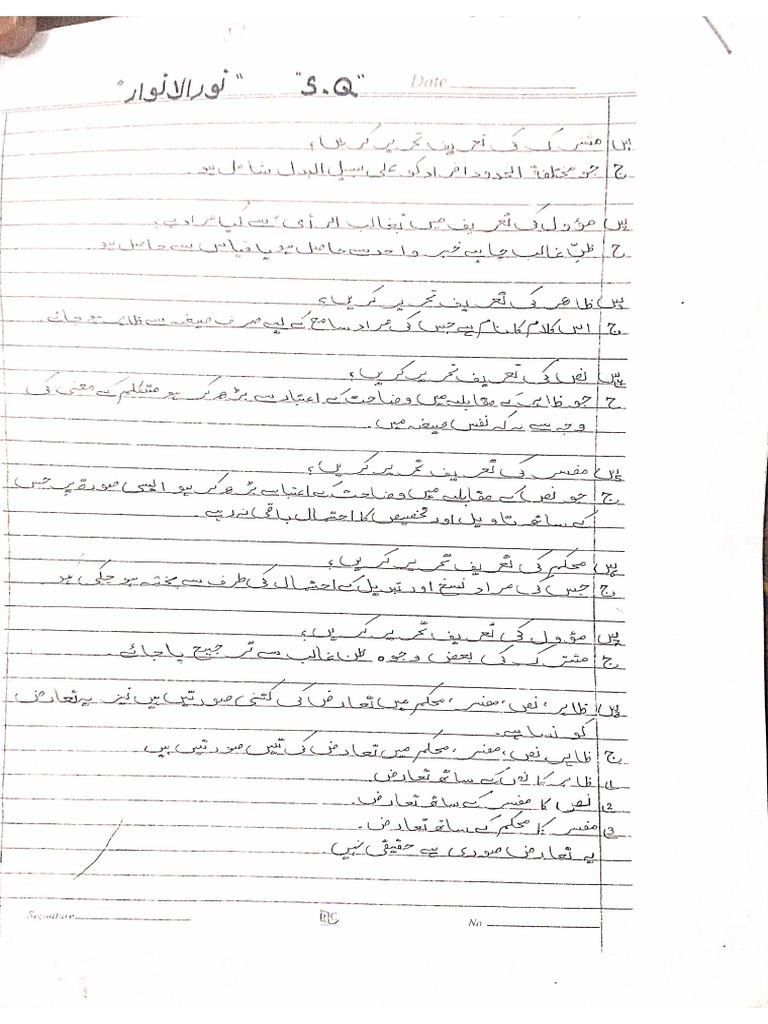 Date
"نورالانوار" "S.Q"
س1 مشترک کی تعریف تحریر کریں؟
ج جو مختلفة الحدود افراد کو علی سبیل البدل شامل ہو۔
س2 مؤول کی تعریف میں بغالب الرأی سے کیا مراد ہے؟
ج ظنِ غالب چاہے خبر واحد سے حاصل ہو یا قیاس سے حاصل ہو۔
س3 ظاہر کی تعریف تحریر کریں؟
ج اس کلام کا نام ہے جس کی مراد سامع کے لیے صرف صیغہ سے ظاہر ہو جائے۔
س4 نص کی تعریف تحریر کریں؟
ج جو ظاہر کے مقابلے میں وضاحت کے اعتبار سے بڑھ کر ہو متکلم کے معنی کی
وجہ سے نہ کہ نفس صیغہ میں۔
س5 مفسر کی تعریف تحریر کریں؟
ج جو نص کے مقابلے میں وضاحت کے اعتبار سے بڑھ کر ہو ایسی صورت پر جس
کے ساتھ تاویل اور تخصیص کا احتمال باقی نہ رہے۔
س6 محکم کی تعریف تحریر کریں؟
ج جس کی مراد نسخ اور تبدیل کے احتمال کی طرف سے پختہ ہو چکی ہو۔
س7 مؤول کی تعریف تحریر کریں؟
ج مشترک کی بعض وجوہ ظن غالب سے ترجیح پا جائے۔
س8 ظاہر، نص، مفسر، محکم میں تعارض کی کتنی صورتیں ہیں نیز یہ تعارض
کونسا ہے۔
ج ظاہر، نص، مفسر، محکم میں تعارض کی تین صورتیں ہیں
1۔ ظاہر کا نص کے ساتھ تعارض۔
2۔ نص کا مفسر کے ساتھ تعارض۔
3۔ مفسر کا محکم کے ساتھ تعارض۔
یہ تعارض صوری ہے حقیقی نہیں۔
Signature No